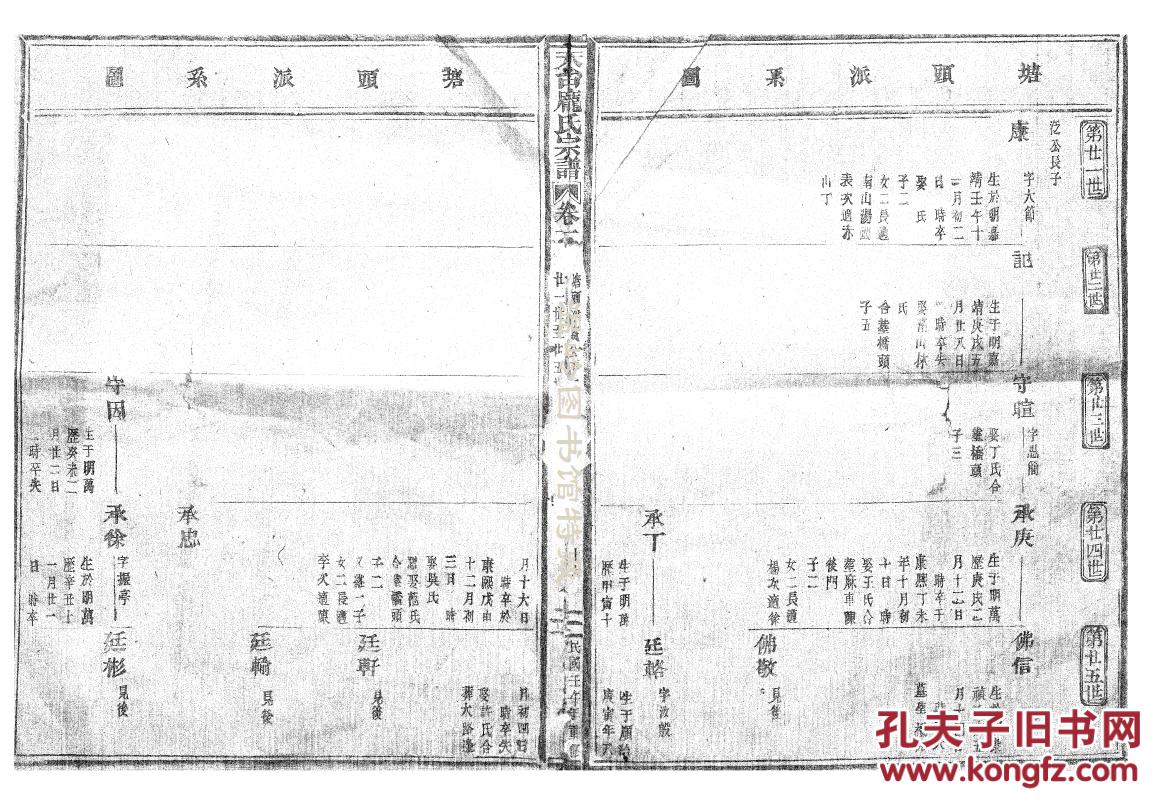 塘頭派系圖
第廿一世
第廿二世
第廿三世
第廿四世
第廿五世
從公長子
康
字大節
生於明嘉
靖壬午十
二月初二
日 時卒
娶 氏
子二
女二長適
南山湯
表次適亦
山丁
記
生于明嘉
靖庚戌五
月廿八日
時卒失
娶 山林
氏
合墓橋頭
子五
守暄
字思閣
娶丁氏合
墓橋頭
子三
承庚
生于明萬
歷庚戌二
月十二日
時卒于
康熙丁未
年十月初
十日 時
娶王氏合
葬麻車陳
後門
子二
女二長適
楊次適徐
佛信
月十
墓
佛敬
見後
承丁
生于明萬
歷甲寅十
廷輅
字汝
生于順治
庚寅年六
天台龐氏宗譜
卷二
廿一世至廿五
民國壬午年重修
塘頭派系圖
月十六日
時卒於
康熙戊申
十二月初
三日 時
娶吳氏
繼娶龐氏
合墓橋頭
子二
又繼一子
女二長適
李次適陳
月初四日
時卒失
娶許氏合
葬大路
廷軒
見後
廷翰
見後
承忠
守因
生于明萬
歷癸未二
月廿二日
時卒失
承徐
字振亭
生於明萬
歷辛丑十
一月廿一
日 時卒
廷彬
見後
图书馆特藏
孔夫子旧书网
www.kongfz.com